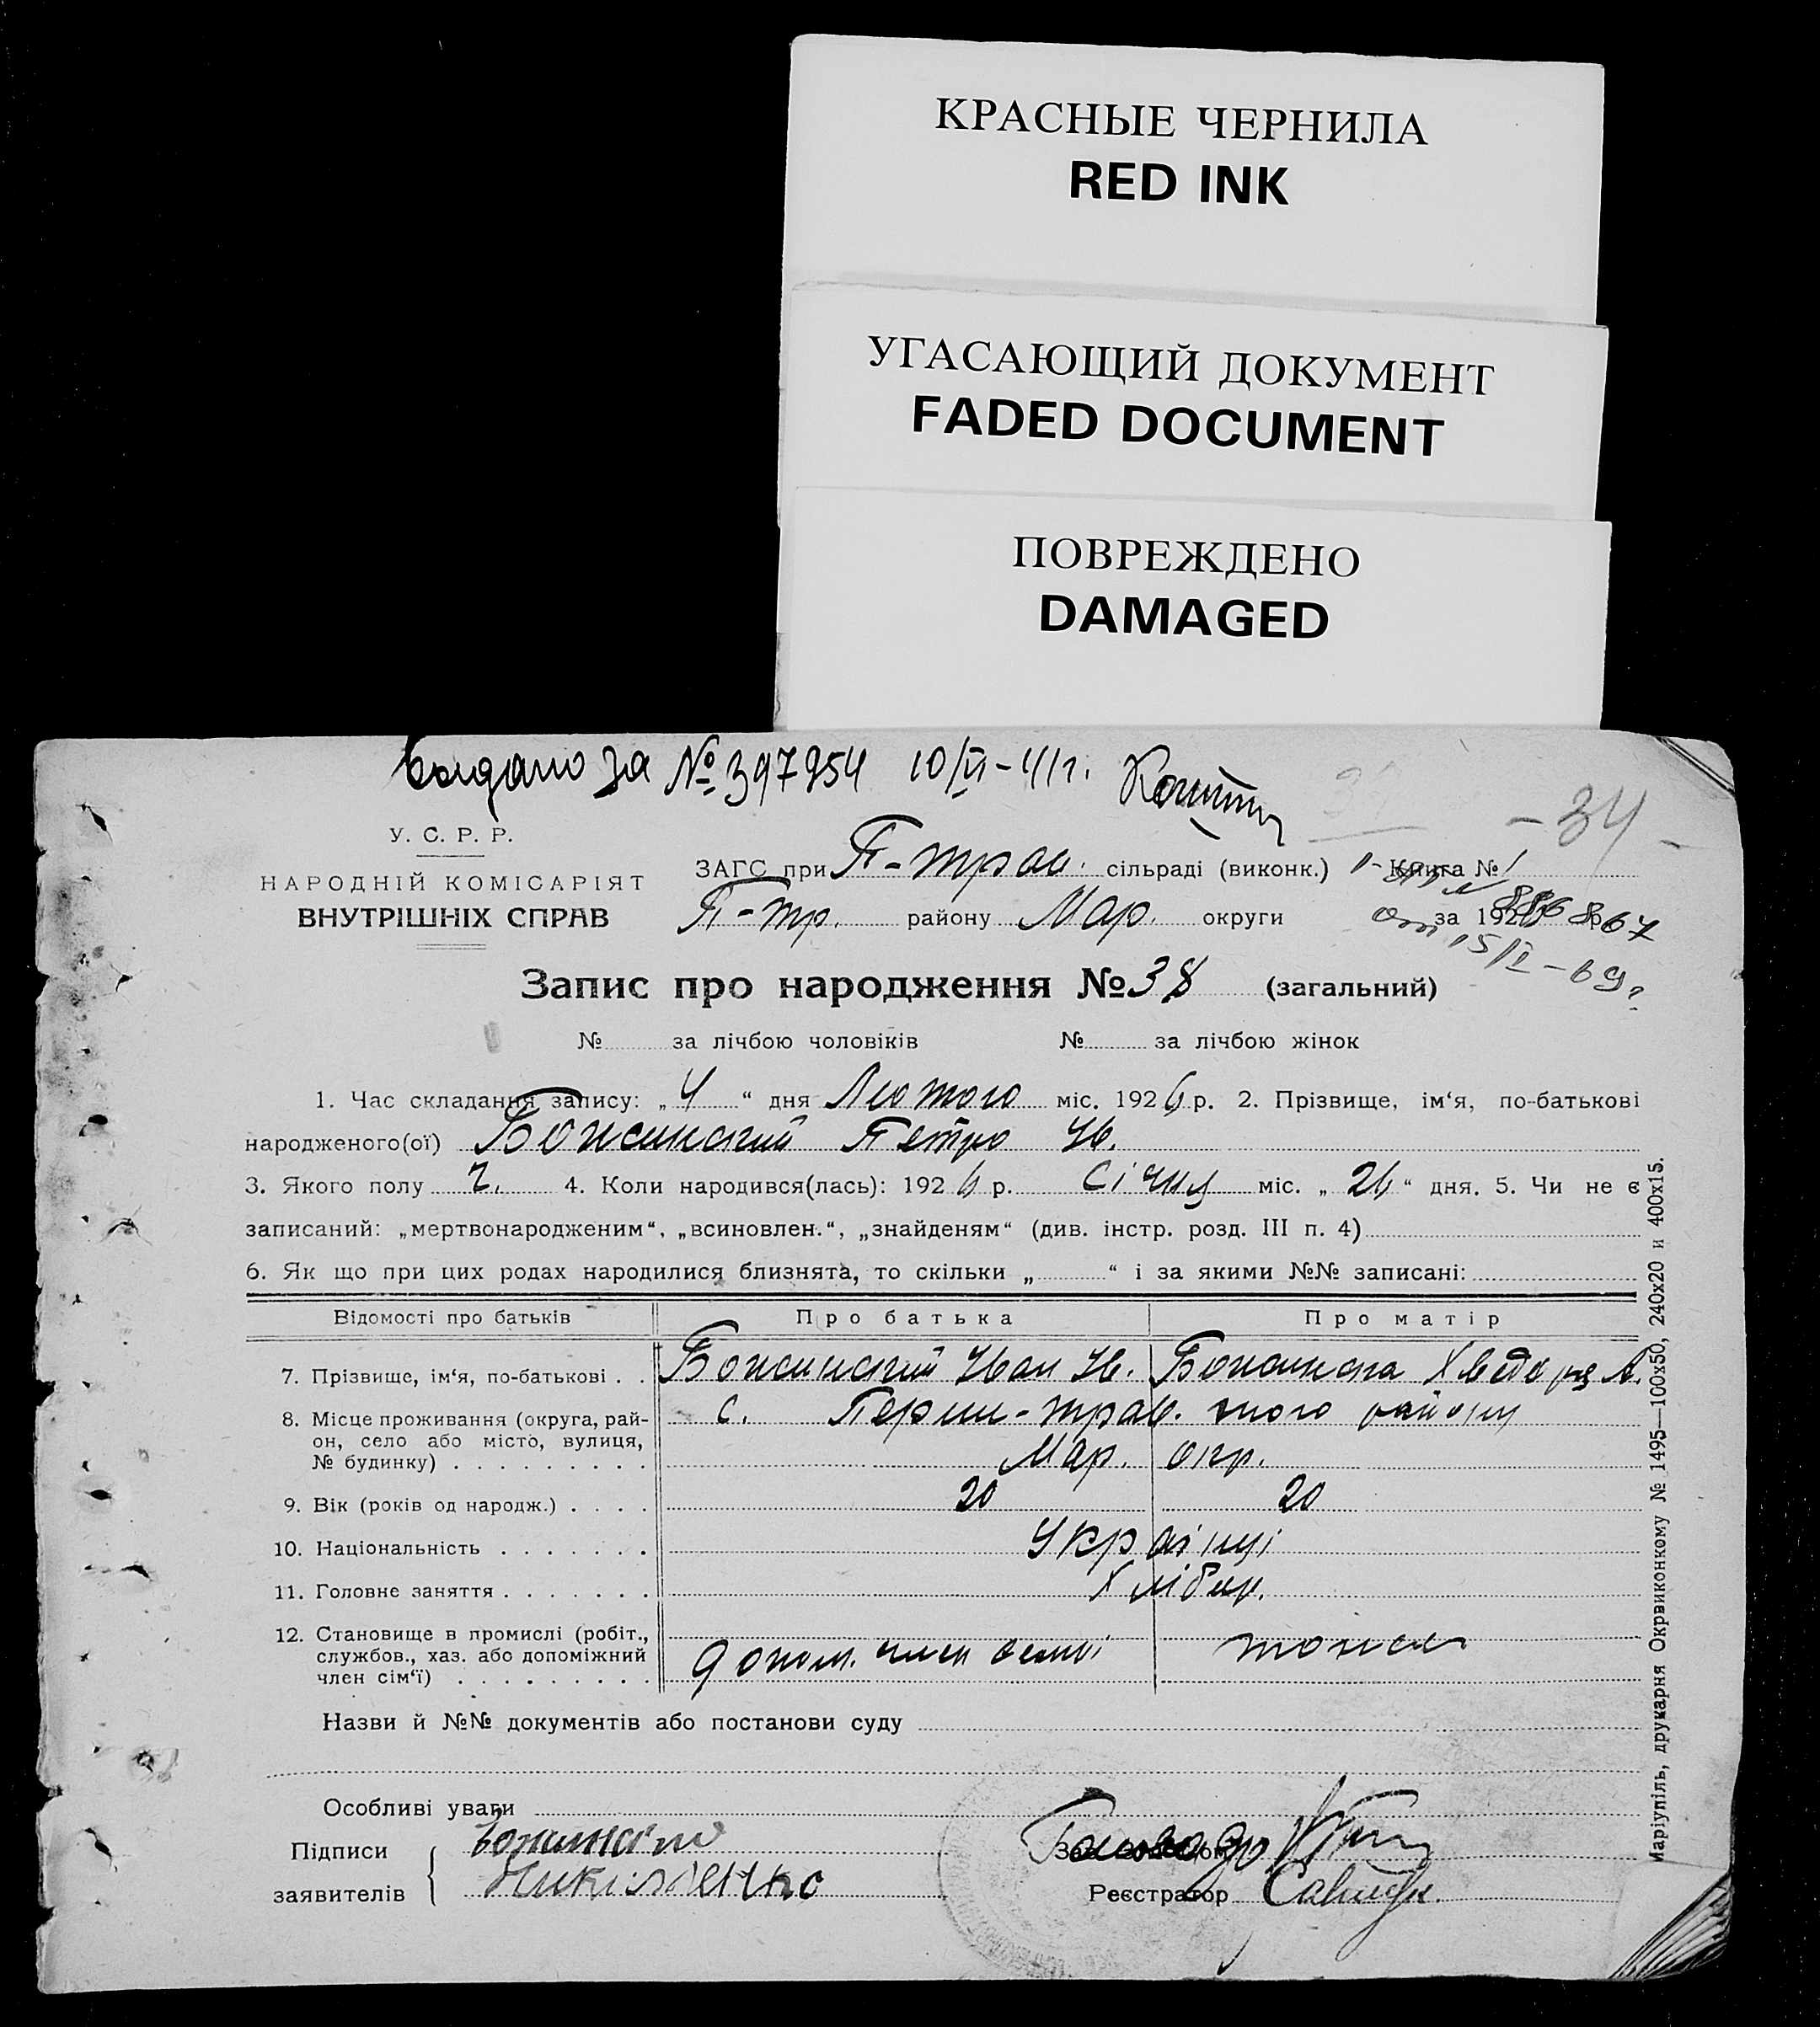 КРАСНЫЕ ЧЕРНИЛА
RED INK
УГАСАЮЩИЙ ДОКУМЕНТ
FADED DOCUMENT
ПОВРЕЖДЕНО
DAMAGED
за № 397954 10/VI-41г.
- 34 -
У. С. Р. Р.
НАРОДНІЙ КОМІСАРІЯТ
ВНУТРІШНІХ СПРАВ
ЗАГС при П-трав. сільраді (виконк.) Книга № 1
П-тр. району Мар. округи за 192
15/I-69г
Запис про народження № 38 (загальний)
№ за лічбою чоловіків № за лічбою жінок
1. Час складання запису: „4“ дня Лютого міс. 1926 р. 2. Прізвище, ім‘я, по-батькові
народженого(ої) Божинский Петро Ив.
3. Якого полу ч. 4. Коли народився(лась): 1926 р. Січня міс. „26“ дня. 5. Чи не є
записаний: „мертвонародженим“, „всиновлен.“, „знайденям“ (див. інстр. розд. III п. 4)
6. Як що при цих родах народилися близнята, то скільки „ “ і за якими №№ записані:
Відомості про батьків Про батька Про матір
7. Прізвище, ім‘я, по-батькові . . Божинский Иван Ив. Божинска Хведора А.
8. Місце проживання (округа, рай-
он, село або місто, вулиця,
№ будинку) . . . . . . . . . с. Перш-трав. того району
Мар. окр.
9. Вік (років од народж.) . . . . 20 20
10. Національність . . . . . . . Українці
11. Головне заняття . . . . . . . Хлібор.
12. Становище в промислі (робіт.,
службов., хаз. або допоміжний
член сім‘ї) . . . . . . . . . допом. член семьї тоже
Назви й №№ документів або постанови суду
Особливі уваги
Підписи
заявителів Николенко
Реєстратор
Маріупіль, друкарня Окрвиконкому № 1495—100х50, 240х20 и 400х15.